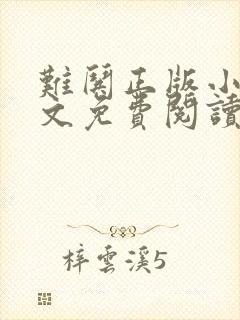 難關正版小
文免費閱讀
梓雲溪5